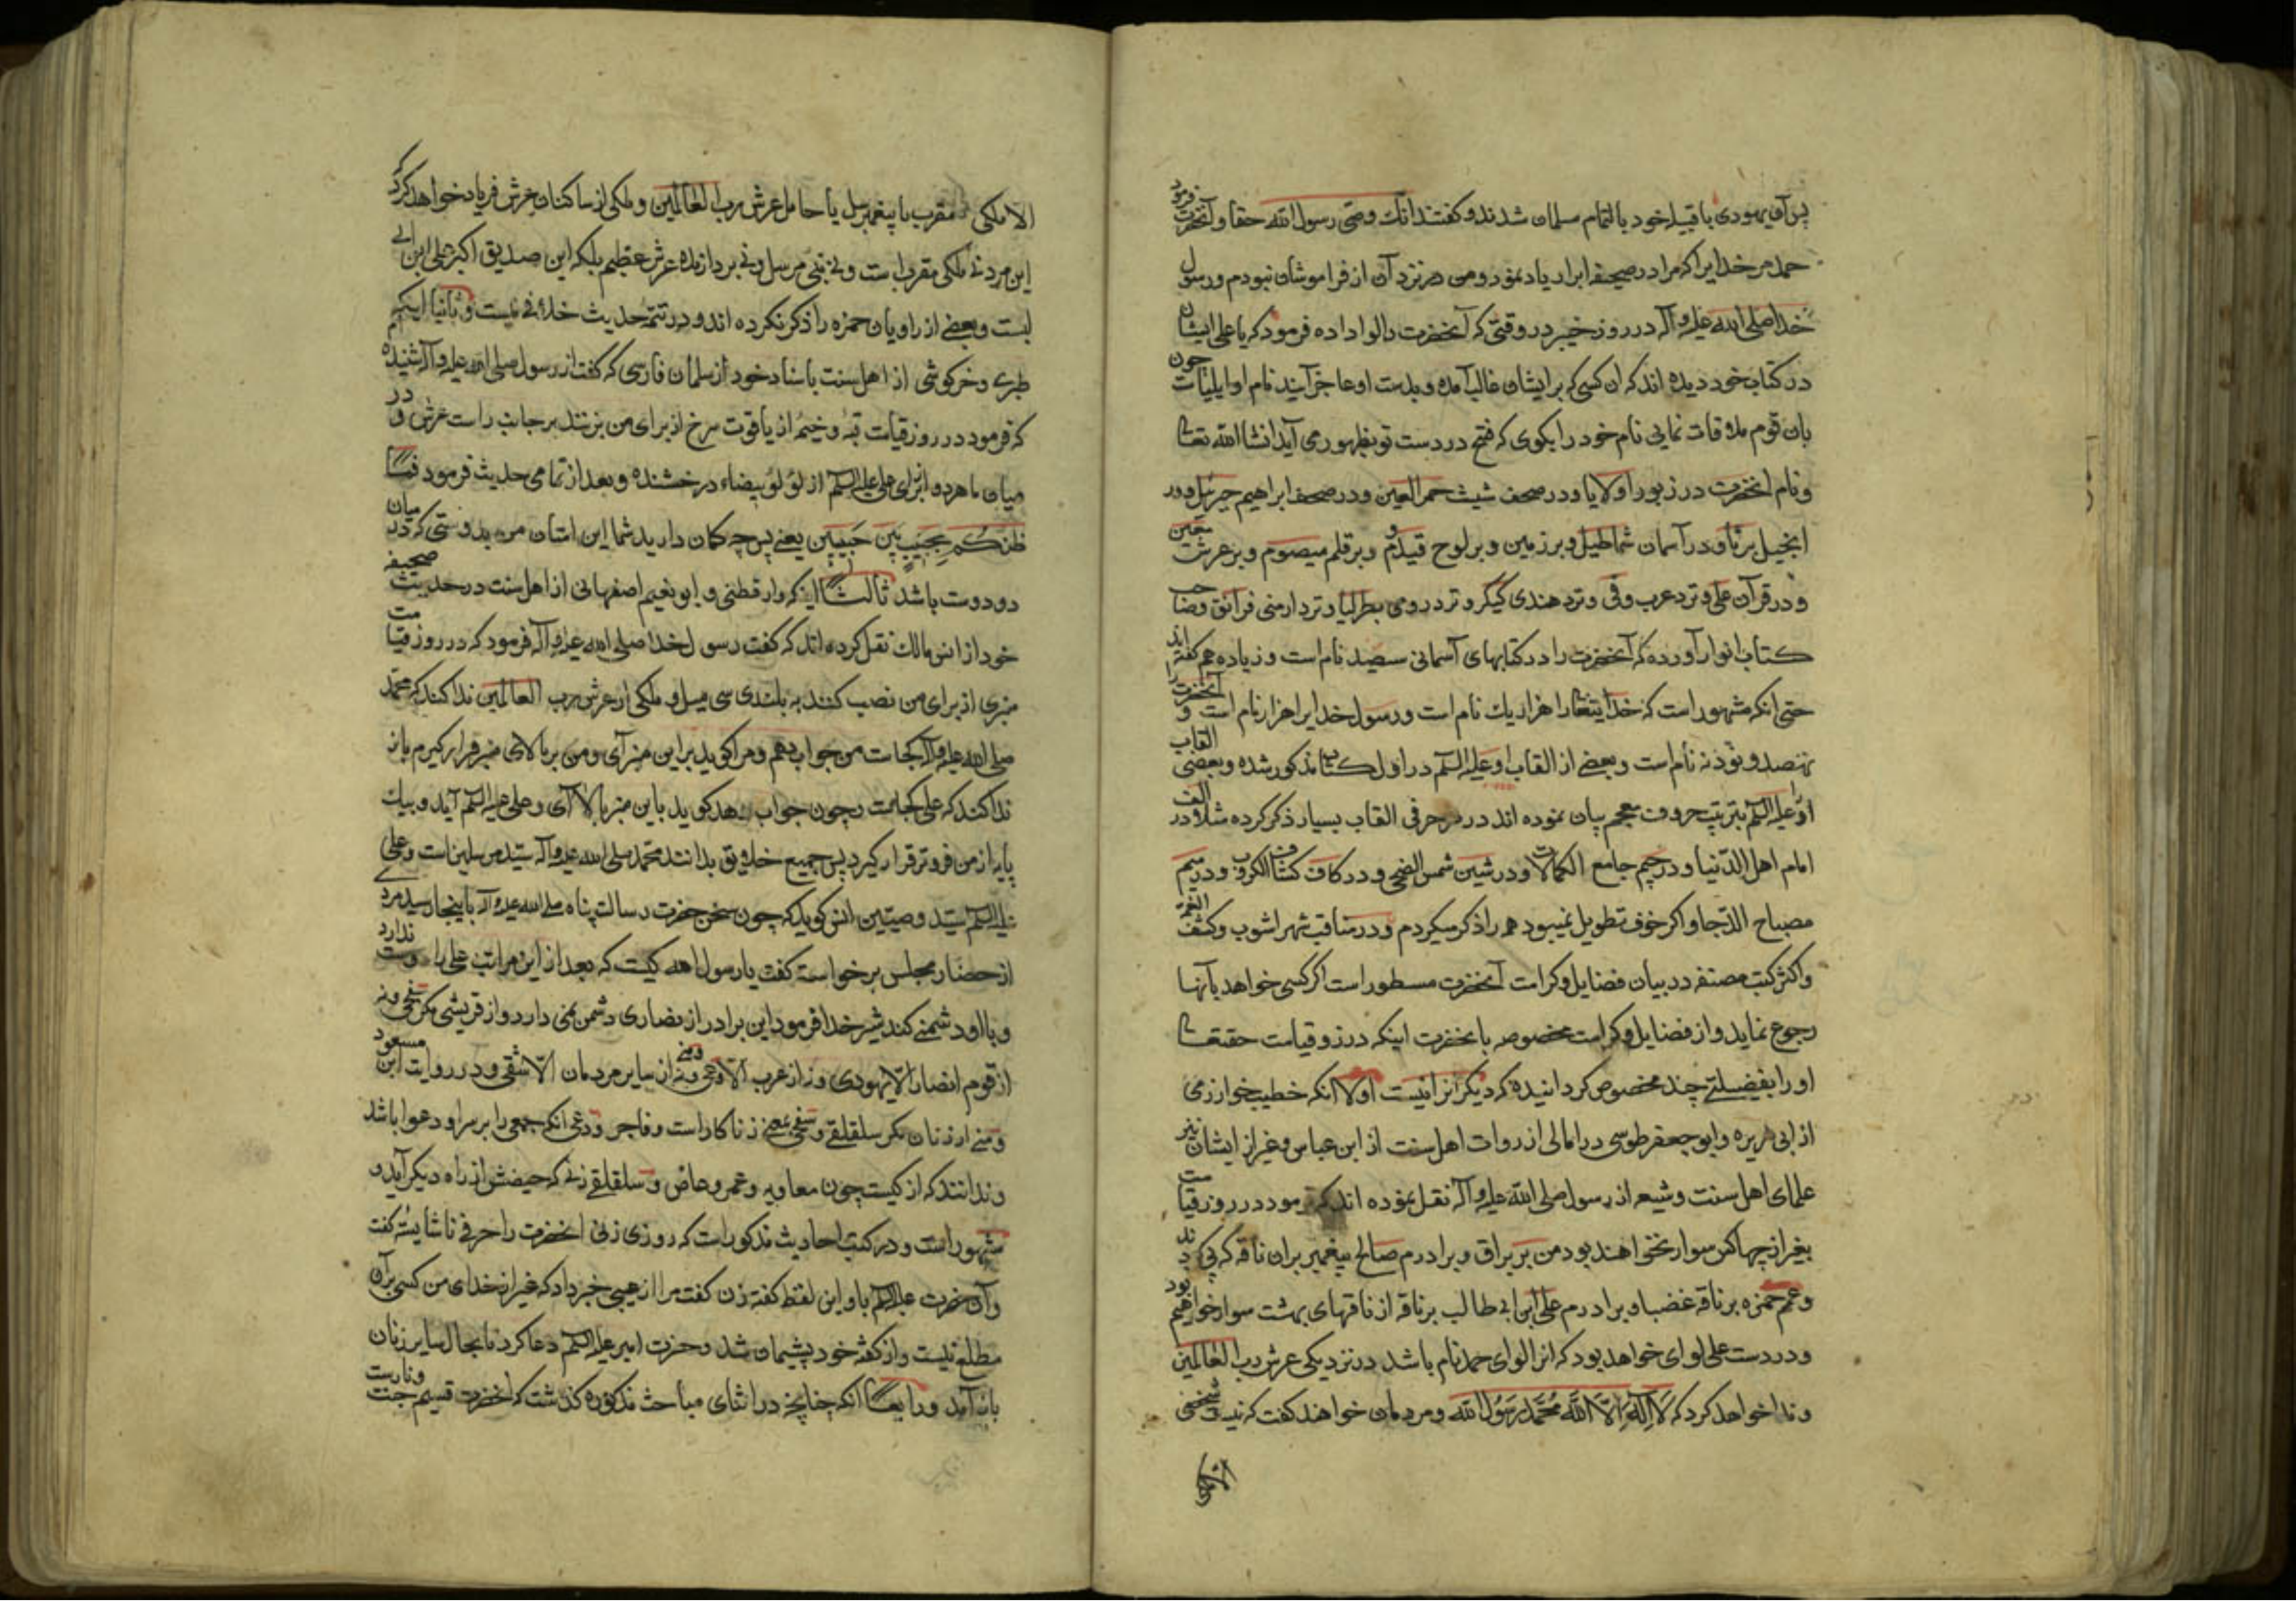 پس آن یهودی با قبیله خود بالتمام مسلمان شدند و گفتند انك وصی رسول الله حقا و آنحضرت فرمود
حمد مر خدایرا که مرا در صحیفه ابرار یاد نمود و من در نزد آن از فراموشان نبودم و رسول
خدا صلی الله علیه و آله در روز خیبر در وقتی که آنحضرت را لوا داده فرمود که یا علی ایشان
در کتاب خود دیده اند که ان کسی که برایشان غالب آمده و بدست او عاجز آیند نام او ایلیاست چون
بان قوم ملاقات نمایی نام خود را بکوی که فتح در دست تو بظهور می آید انشا الله تعالی
و نام انحضرت در زبور اولایا و در صحف شیث حمر العین و در صحف ابراهیم جرئیل و در
انجیل بریا و در آسمان شماطیل و بر زمین و بر لوح قیدم و بر قلم میصوم و بر عرش معین
و در قرآن علی و نزد عرب وفی و نزد هندی کبکر و نزد رومی بطرلیا و نزد ارمنی فرانق و صاحب
کتاب انوار آورده که آنحضرت را در کتابهای آسمانی سیصد نام است و زیاده هم گفته اند
حتی انکه مشهور است که خدایتعالی را هزار یك نام است و رسول خدایرا هزار نام است و آنحضرت را
نهصد و نود نه نام است و بعضی از القاب او علیه السلم در اول کتاب مذکور شده و بعضی القاب
او را علیه السلم بترتیب حروف معجم بیان نموده اند در هر حرفی القاب بسیار ذکر کرده مثلا در الف
امام اهل الدنیا و در جیم جامع الکمالات و در شین شمس الضحی و در کاف کشاف الکروب و در میم
مصباح الدجا و اگر خوف تطویل نمیبود همه را ذکر میکردم و در مناقب شهر اشوب و کشف الغمه
و اکثر کتب مصنفه در بیان فضایل و کرامت آنحضرت مسطور است اگر کسی خواهد بآنها
رجوع نماید و از فضایل و کرامت مخصوصه بانحضرت اینکه در روز قیامت حقتعالی
او را بفضیلتی چند مخصوص کردانیده که دیگرانرا نیست اولا انکه خطیب خوارزمی
از ابی هریره و ابو جعفر طوسی در امالی از روات اهل سنت از ابن عباس و غیر از ایشان نیز
علمای اهل سنت و شیعه از رسول صلی الله علیه و آله نقل نموده اند که فرمود در روز قیامت
بغیر از چهار کس سوار نخواهند بود من بر براق و برادرم صالح پیغمبر بران ناقه که پی کردند
و عمم حمزه بر ناقه غضبا و برادرم علی ابن ابی طالب بر ناقه از ناقهای بهشت سوار خواهیم بود
و در دست علی لوای خواهد بود که انرا لوای حمد نام باشد در نزدیکی عرش رب العالمین
و ندا خواهد کرد که لا اله الا الله محمد رسول الله و مردمان خواهند گفت که نیست شخصی
الا ملکی مقرب یا پیغمبر مرسل یا حامل عرش رب العالمین و ملکی از ساکنان عرش فریاد خواهد کرد
این مرد نه ملکی مقرب است و نه نبی مرسل و نه بردارنده عرش عظیم بلکه این صدیق اکبر علی ابن ابی
لبست و بعضی از راویان حمزه را ذکر نکرده اند و در تتمه حدیث خلافی نیست و ثانیا اینکه
طبری و خرکوشی از اهل سنت باسناد خود از سلمان فارسی که گفت از رسول صلی الله علیه و آله شنیدم
که فرمود در روز قیامت قبه و خیمه از یاقوت سرخ از برای من بزنند بر جانب راست عرش و در
میان ما هر دو از برای علی علیه السلم از لؤلؤ بیضاء درخشنده و بعد از تمامی حدیث فرمود فما
ظنکم بحبیب بین حبیبین یعنی پس چه کمان دارید شما این امتان من بدوستی که در میان
دو دوست باشد ثالثا اینکه دارقطنی و ابو نعیم اصفهانی از اهل سنت در حدیث صحیحه
خود از انس مالك نقل کرده اند که گفت رسول خدا صلی الله علیه و آله فرمود که در روز قیامت
منبری از برای من نصب کنند به بلندی سی میل و ملکی از عرش رب العالمین ندا کند که محمد
صلی الله علیه و آله کجاست من جواب دهم و مرا گوید بر این منبر آی و من بر بالای منبر قرار گیرم باز
ندا کند که علی کجاست و چون جواب دهد گوید باین منبر بالا آی و علی علیه السلم آید و بیك
پایه از من فروتر قرار گیرد پس جمیع خلایق بدانند محمد صلی الله علیه و آله سید مرسلین است و علی
علیه السلم سید وصیین انس گوید که چون سخن حضرت رسالت پناه صلی الله علیه و آله باینجا رسید مردی
از حضار مجلس برخواست گفت یا رسول الله کیست که بعد از این مراتب علی را دوست ندارد
و با او دشمنی کند شیر خدا فرمود این برادر از نصاری دشمن نمی دارد و از قریشی مگر سفحی و نه
از قوم انصار الا یهودی و نه از عرب الا دعی و نه از سایر مردمان الا شقی و در روایت ابن مسعود
و منی از زنان مگر سلقلقی و سفحی بمعنی زناکار است و فاجر و دعی انکه جمعی را بر سر او دعوا باشد
و ندانند که از کیست چون معاویه و عمرو عاص و سلقلقی زنی که حیضش از راه دیگر آید و
مشهور است و در کتب احادیث مذکور است که روزی زنی انحضرت را حرفی ناشایسته گفت
و آن حضرت علیه السلم باو این لفظ گفته زن گفت مرا از عیبی خبر داد که غیر از خدای من کسی بر آن
مطلع نیست و از گفته خود پشیمان شد و حضرت امیر علیه السلم دعا کرد تا بحال سایر زنان
باز آمد و رابعا انکه چنانچه در اثنای مباحث مذکوره گذشت که انحضرت قسیم جنت و نار است